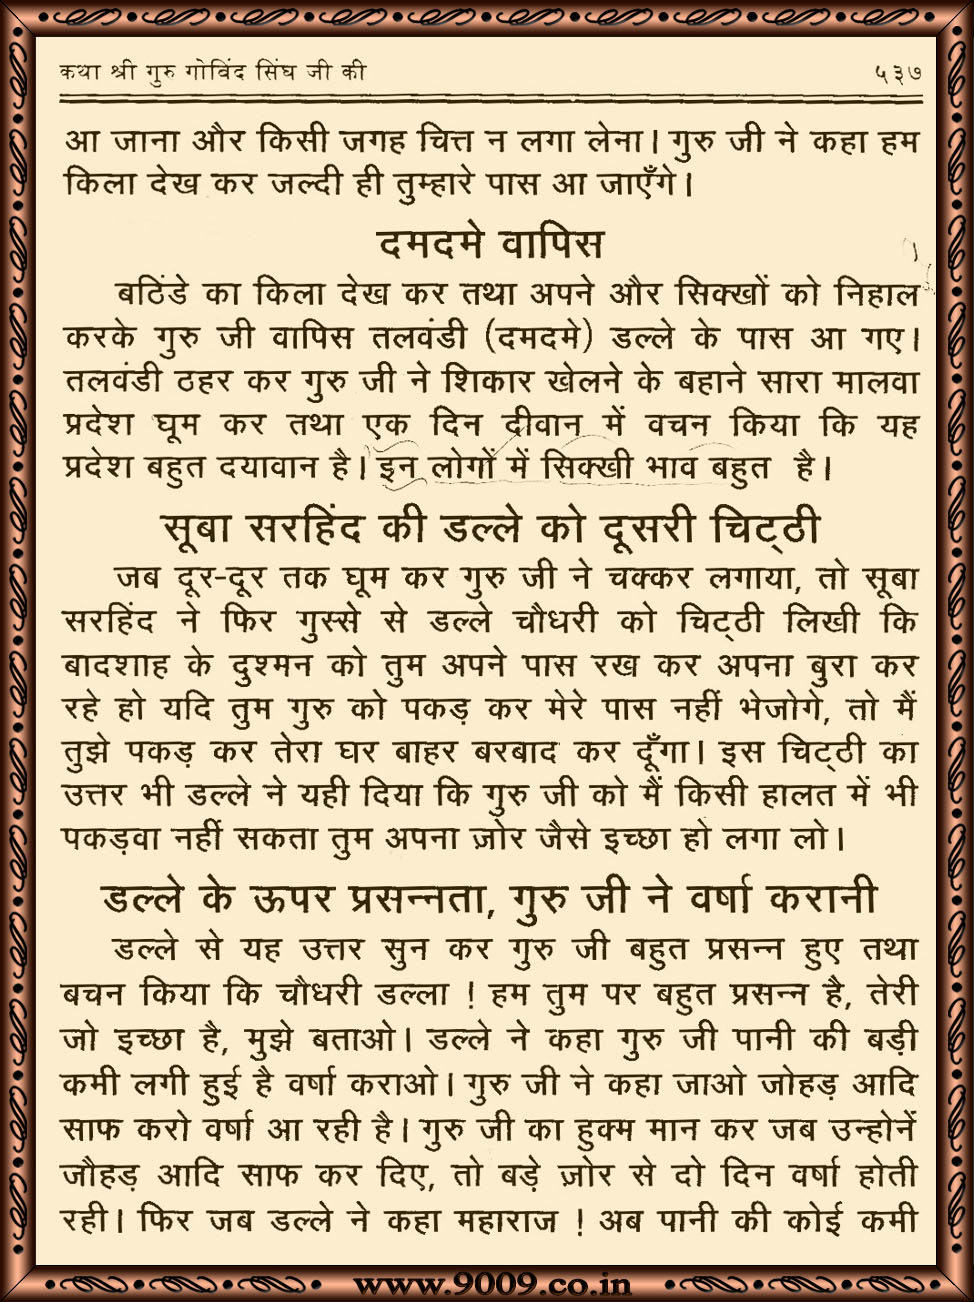 कथा श्री गुरु गोबिंद सिंघ जी की ५३७
आ जाना और किसी जगह चित्त न लगा लेना। गुरु जी ने कहा हम
किला देख कर जल्दी ही तुम्हारे पास आ जाएँगे।
दमदमे वापिस
बठिंडे का किला देख कर तथा अपने और सिक्खों को निहाल
करके गुरु जी वापिस तलवंडी (दमदमे) डल्ले के पास आ गए।
तलवंडी ठहर कर गुरु जी ने शिकार खेलने के बहाने सारा मालवा
प्रदेश घूम कर तथा एक दिन दीवान में वचन किया कि यह
प्रदेश बहुत दयावान है। इन लोगों में सिक्खी भाव बहुत है।
सूबा सरहिंद की डल्ले को दूसरी चिट्ठी
जब दूर-दूर तक घूम कर गुरु जी ने चक्कर लगाया, तो सूबा
सरहिंद ने फिर गुस्से से डल्ले चौधरी को चिट्ठी लिखी कि
बादशाह के दुश्मन को तुम अपने पास रख कर अपना बुरा कर
रहे हो यदि तुम गुरु को पकड़ कर मेरे पास नहीं भेजोगे, तो मैं
तुझे पकड़ कर तेरा घर बाहर बरबाद कर दूँगा। इस चिट्ठी का
उत्तर भी डल्ले ने यही दिया कि गुरु जी को मैं किसी हालत में भी
पकड़वा नहीं सकता तुम अपना ज़ोर जैसे इच्छा हो लगा लो।
डल्ले के ऊपर प्रसन्नता, गुरु जी ने वर्षा करानी
डल्ले से यह उत्तर सुन कर गुरु जी बहुत प्रसन्न हुए तथा
बचन किया कि चौधरी डल्ला ! हम तुम पर बहुत प्रसन्न है, तेरी
जो इच्छा है, मुझे बताओ। डल्ले ने कहा गुरु जी पानी की बड़ी
कमी लगी हुई है वर्षा कराओ। गुरु जी ने कहा जाओ जोहड़ आदि
साफ करो वर्षा आ रही है। गुरु जी का हुक्म मान कर जब उन्होनें
जौहड़ आदि साफ कर दिए, तो बड़े ज़ोर से दो दिन वर्षा होती
रही। फिर जब डल्ले ने कहा महाराज ! अब पानी की कोई कमी
www.9009.co.in